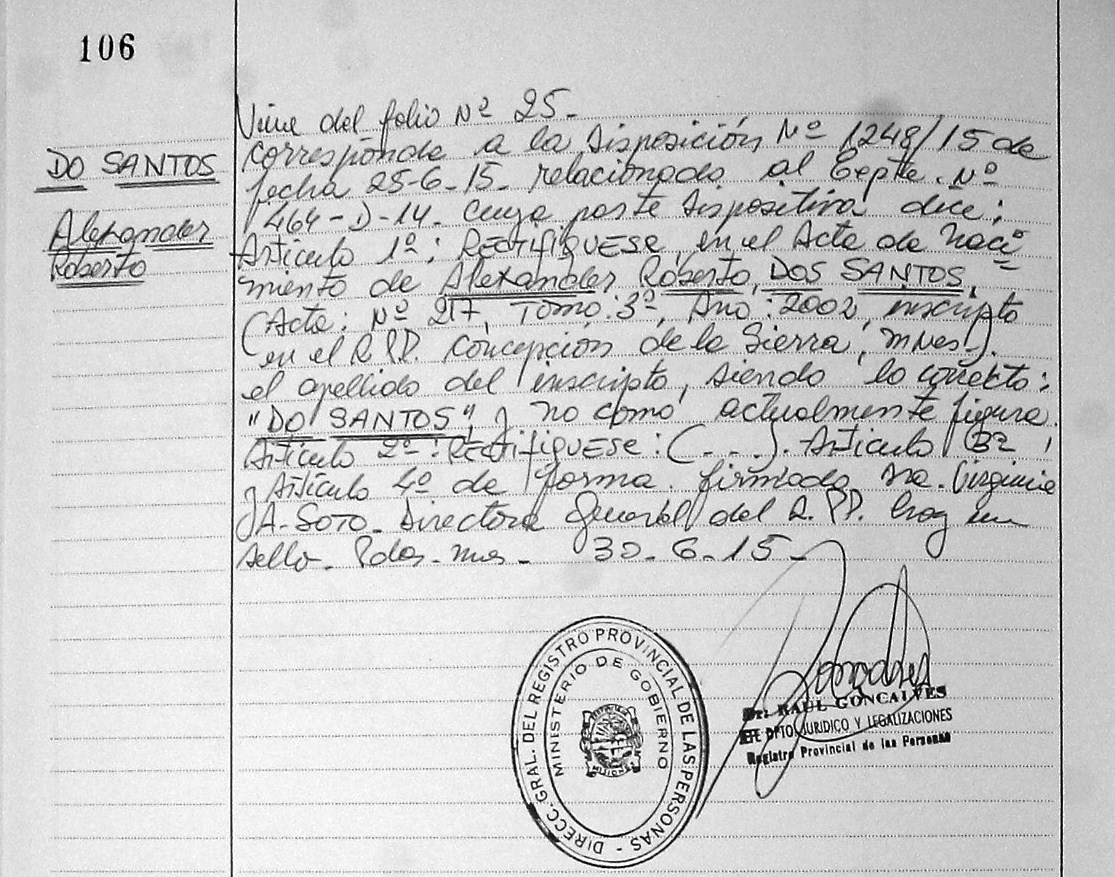 106
DO SANTOS
Alexander
Roberto
Viene del folio Nº 25.-
Corresponde a la Disposición Nº 1248/15 de
fecha 25-6-15. relacionado al Expte. Nº
1464-D-14. cuya parte dispositiva dice:
Artículo 1º: RECTIFIQUESE, en el Acta de Naci
miento de Alexander Roberto, DOS SANTOS,
(Acta: Nº 217, Tomo: 3º, Año: 2002, inscripto
en el R.PP. Concepción de la Sierra, mnes).
el apellido del inscripto, siendo lo correcto:
"DO SANTOS", y no como actualmente figura.
Artículo 2º: RECTIFIQUESE: (...). Artículo 3º,
y Artículo 4º de forma. firmado, Virginia
A. SOTO. Directora General del R.PP. hay un
sello. Pdas. mnes. 30-6-15-
DIRECC. GRAL. DEL REGISTRO PROVINCIAL DE LAS PERSONAS -
MINISTERIO DE GOBIERNO
Dr. RAUL GONCALVES
JEFE DPTO JURIDICO Y LEGALIZACIONES
Registro Provincial de las Personas